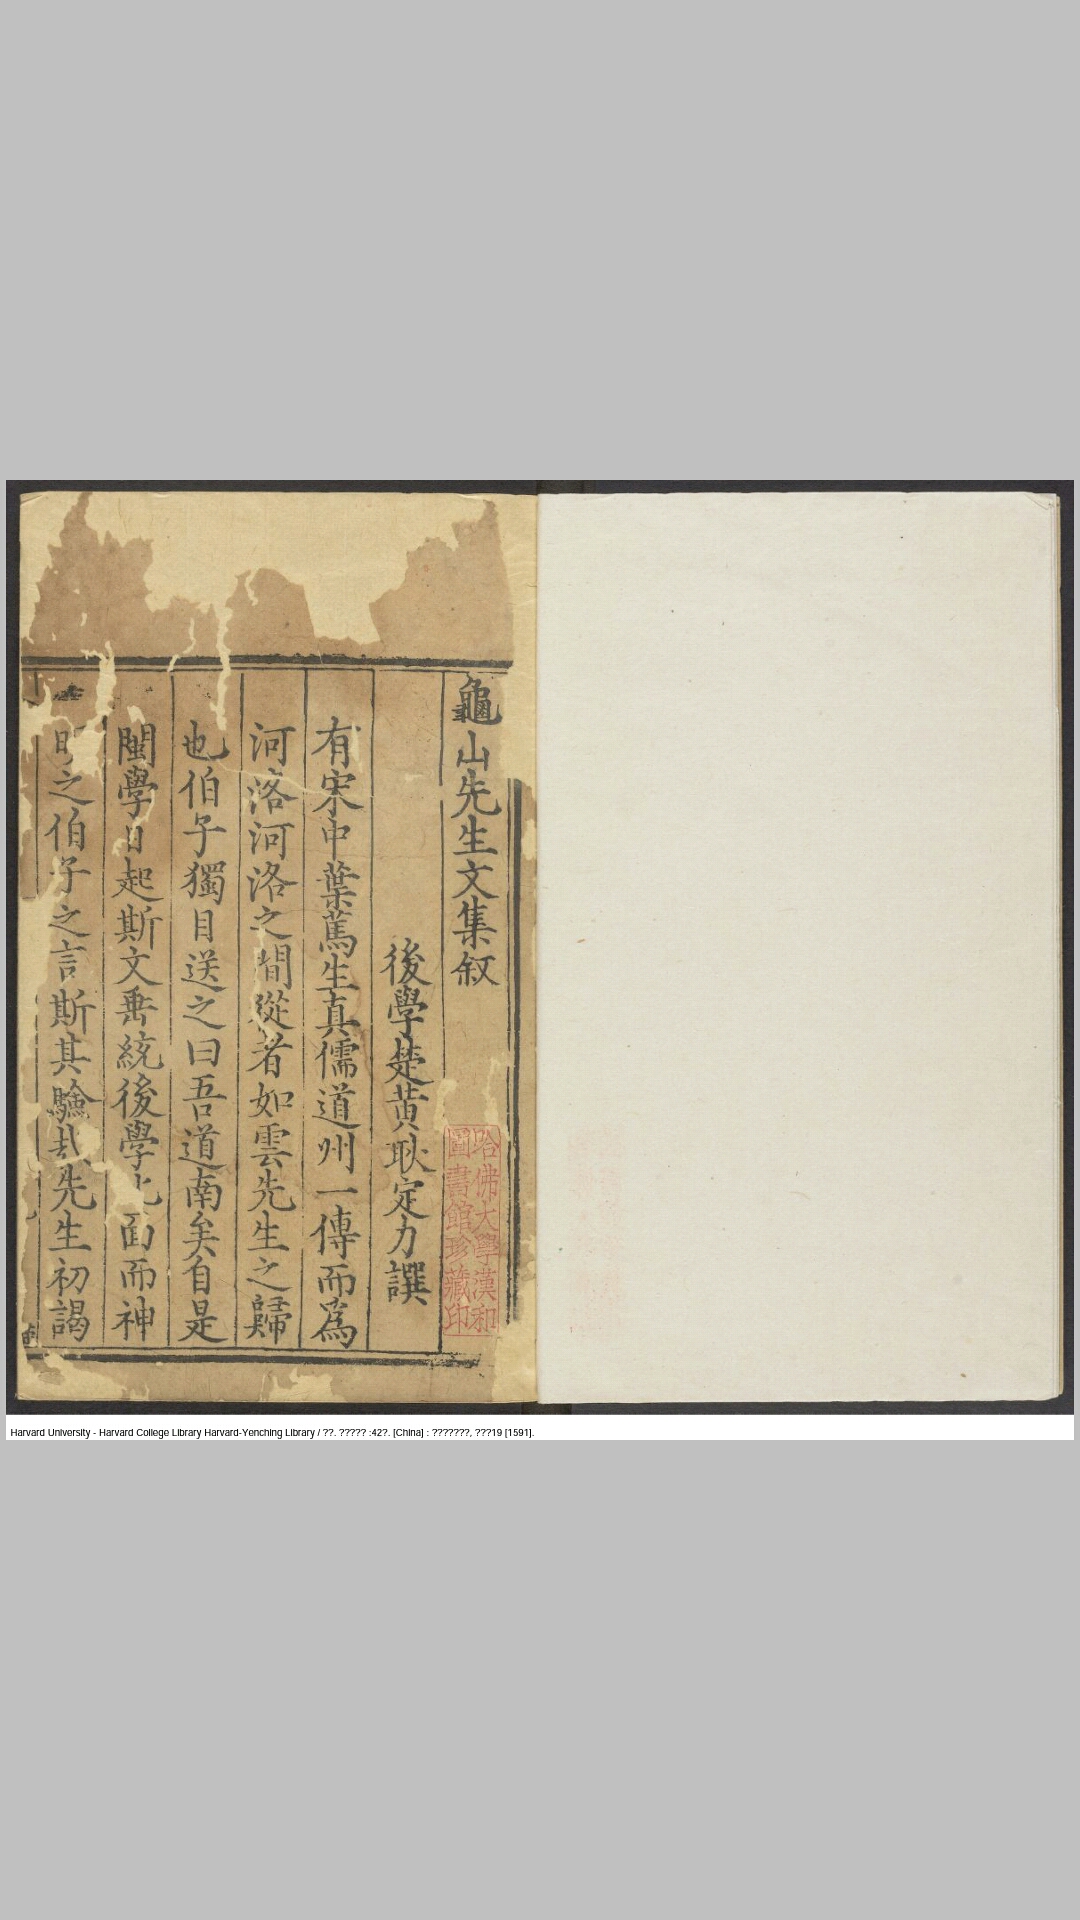 龜山先生文集叙
後學楚黃耿定力譔
有宋中葉篤生真儒道州一傳而為
河洛河洛之間從者如雲先生之歸
也伯子獨目送之曰吾道南矣自是
閩學日起斯文垂統後學北面而神
明之伯子之言斯其驗哉先生初謁
哈佛大學漢和
圖書館珍藏印
Harvard University - Harvard College Library Harvard-Yenching Library / ??. ????? :42?. [China] : ???????, ???19 [1591].